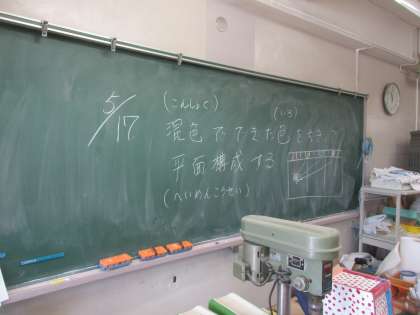 5/17
(こんしょく)
(いろ)
混色でできた色を
平面構成する
(へいめんこうせい)